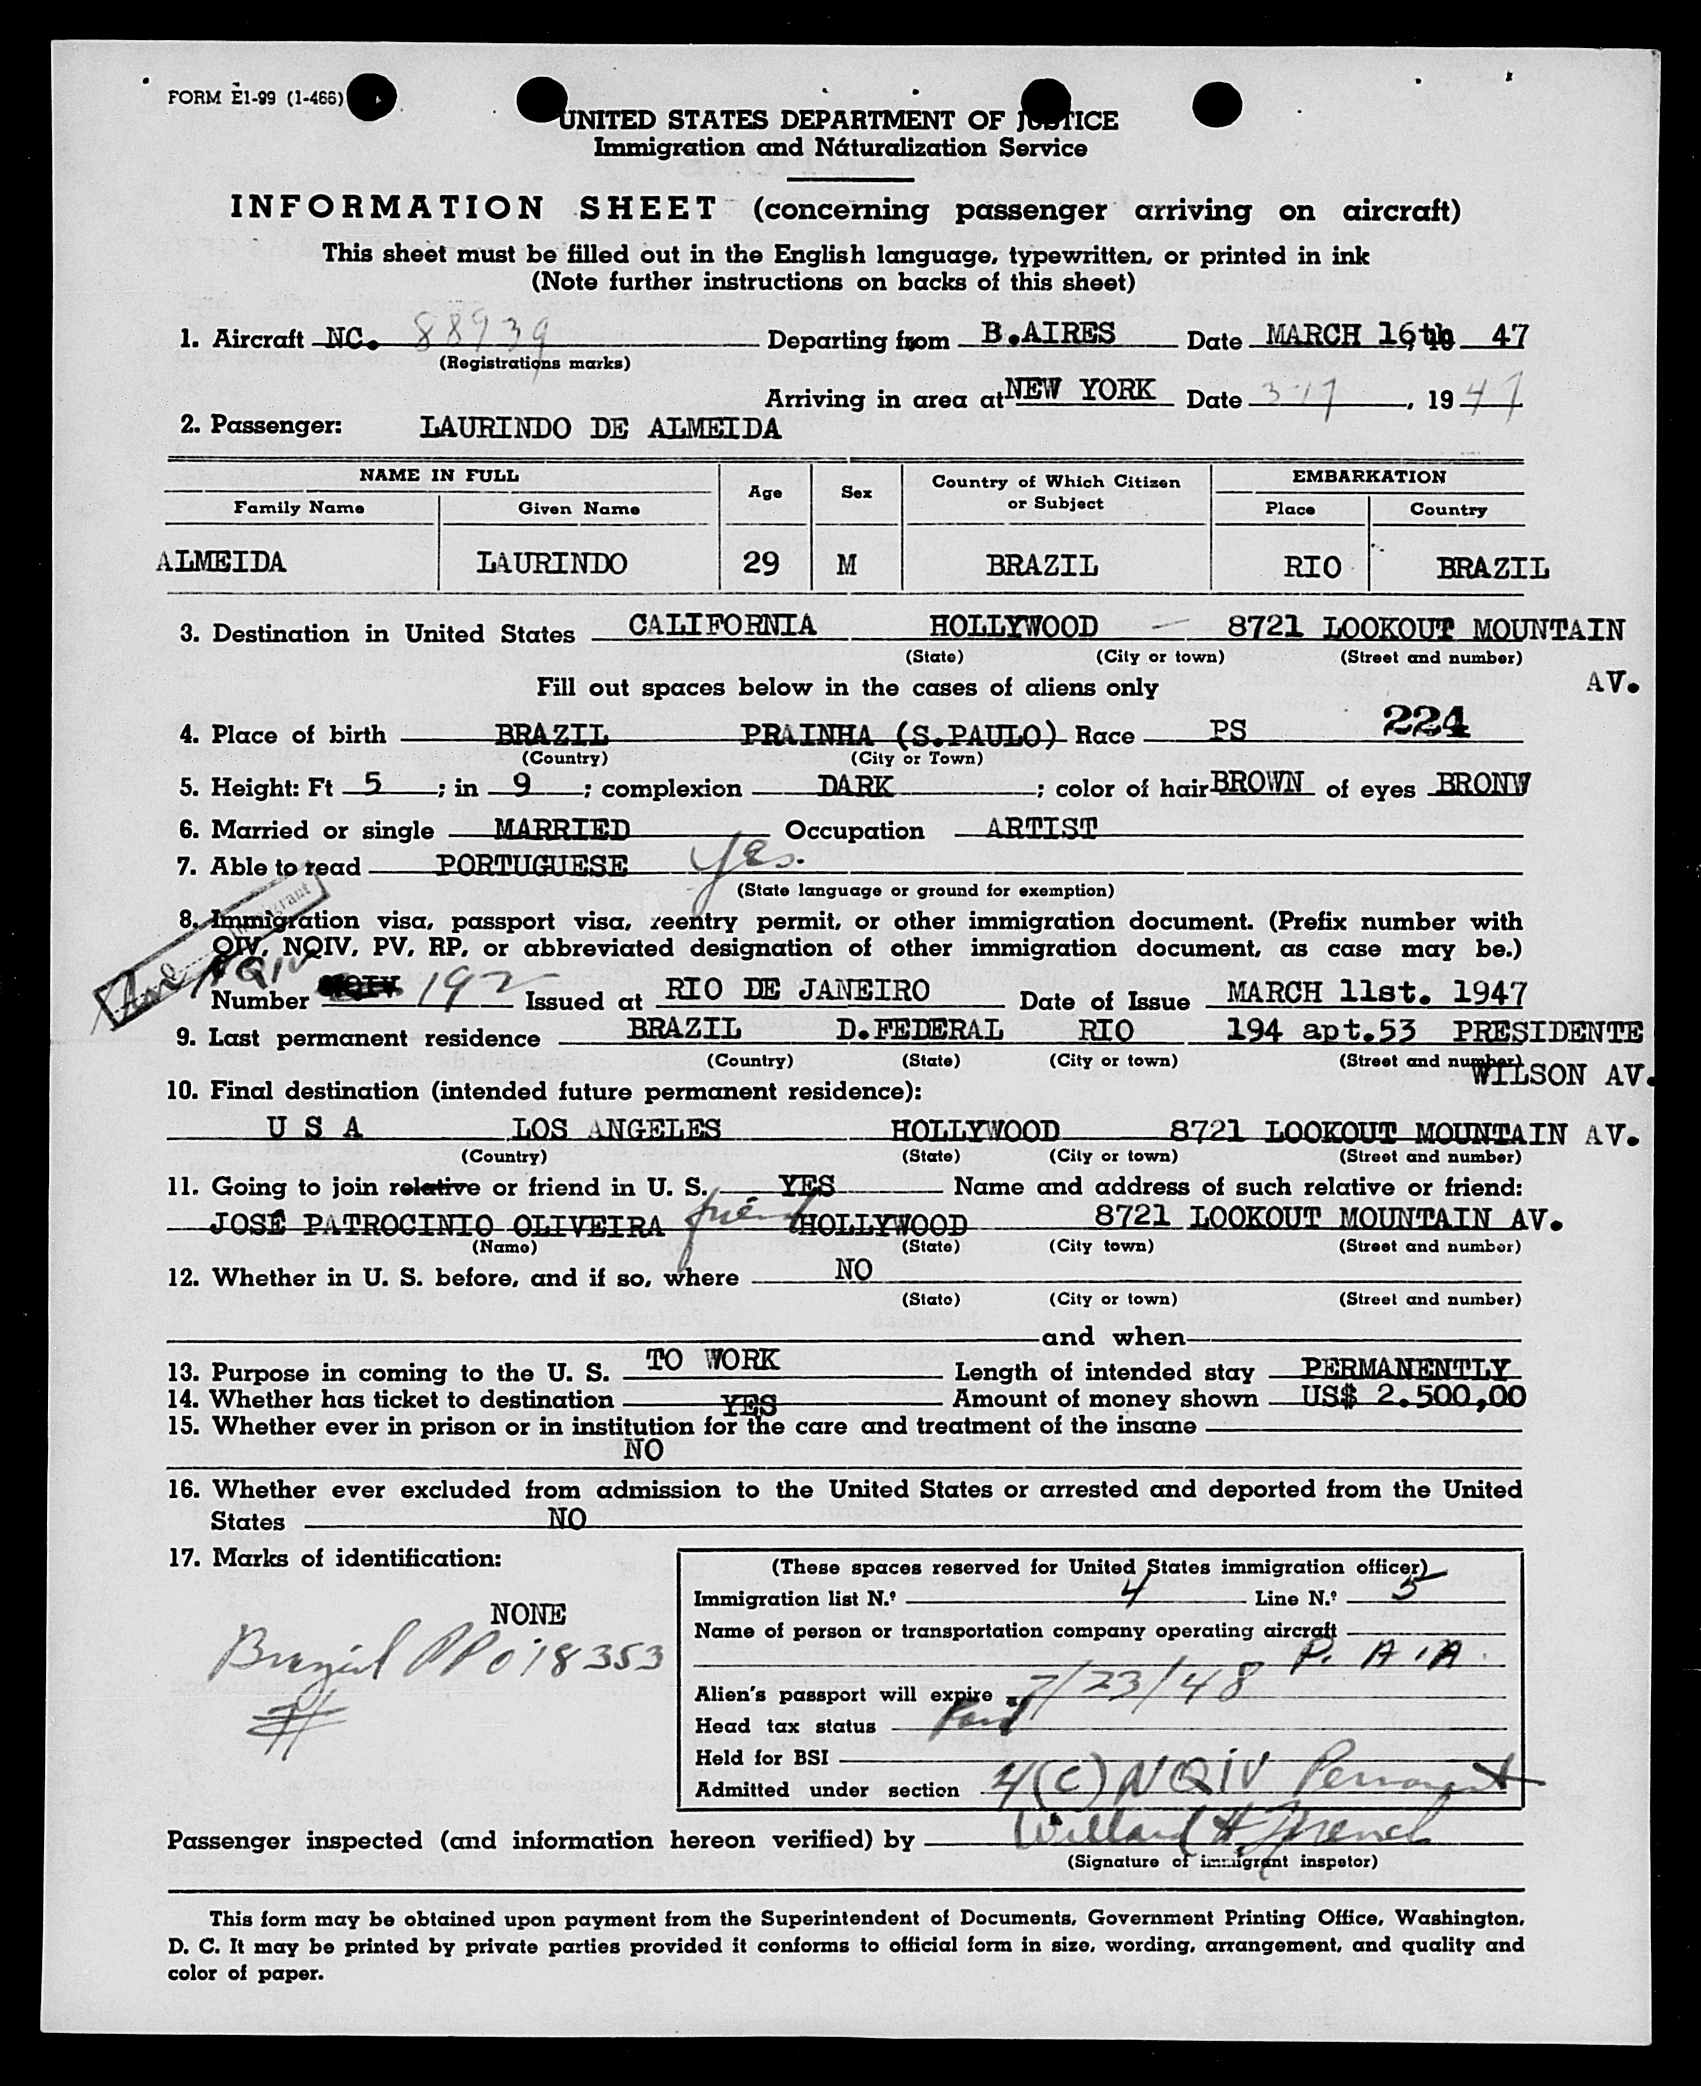 FORM E1-99 (1-466)
UNITED STATES DEPARTMENT OF JUSTICE
Immigration and Naturalization Service
INFORMATION SHEET (concerning passenger arriving on aircraft)
This sheet must be filled out in the English language, typewritten, or printed in ink
(Note further instructions on backs of this sheet)
1. Aircraft NC. 88939 Departing from B.AIRES Date MARCH 16th 47
(Registrations marks)
Arriving in area at NEW YORK Date 3-17, 1947
2. Passenger: LAURINDO DE ALMEIDA
NAME IN FULL Age Sex Country of Which Citizen or Subject EMBARKATION
Family Name Given Name Place Country
ALMEIDA LAURINDO 29 M BRAZIL RIO BRAZIL
3. Destination in United States CALIFORNIA HOLLYWOOD - 8721 LOOKOUT MOUNTAIN
(State) (City or town) (Street and number)
AV.
Fill out spaces below in the cases of aliens only
224
4. Place of birth BRAZIL PRAINHA (S.PAULO) Race PS
(Country) (City or Town)
5. Height: Ft 5 ; in 9 ; complexion DARK ; color of hair BROWN of eyes BRONW
6. Married or single MARRIED Occupation ARTIST
7. Able to read PORTUGUESE yes.
(State language or ground for exemption)
8. Immigration visa, passport visa, reentry permit, or other immigration document. (Prefix number with
QIV, NQIV, PV, RP, or abbreviated designation of other immigration document, as case may be.)
NQIV
Number 192 Issued at RIO DE JANEIRO Date of Issue MARCH 11st. 1947
9. Last permanent residence BRAZIL D.FEDERAL RIO 194 apt.53 PRESIDENTE
(Country) (State) (City or town) (Street and number)
WILSON AV.
10. Final destination (intended future permanent residence):
U S A LOS ANGELES HOLLYWOOD 8721 LOOKOUT MOUNTAIN AV.
(Country) (State) (City or town) (Street and number)
11. Going to join relative or friend in U. S. YES Name and address of such relative or friend:
JOSÉ PATROCINIO OLIVEIRA friend HOLLYWOOD 8721 LOOKOUT MOUNTAIN AV.
(Name) (State) (City town) (Street and number)
12. Whether in U. S. before, and if so, where NO
(State) (City or town) (Street and number)
and when
13. Purpose in coming to the U. S. TO WORK Length of intended stay PERMANENTLY
14. Whether has ticket to destination YES Amount of money shown US$ 2.500,00
15. Whether ever in prison or in institution for the care and treatment of the insane
NO
16. Whether ever excluded from admission to the United States or arrested and deported from the United
States NO
17. Marks of identification:
NONE
Brazil PP 018353
(These spaces reserved for United States immigration officer)
Immigration list N.º 4 Line N.º 5
Name of person or transportation company operating aircraft
P. A. A.
Alien's passport will expire 7/23/48
Head tax status Paid
Held for BSI
Admitted under section 4(C) NQIV Permanent
Passenger inspected (and information hereon verified) by Willard H. French
(Signature of immigrant inspetor)
This form may be obtained upon payment from the Superintendent of Documents, Government Printing Office, Washington,
D. C. It may be printed by private parties provided it conforms to official form in size, wording, arrangement, and quality and
color of paper.